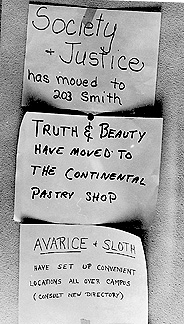 Society
+ Justice
has moved to
203 Smith
TRUTH & BEAUTY
HAVE MOVED TO
THE CONTINENTAL
PASTRY SHOP
AVARICE + SLOTH
HAVE SET UP CONVENIENT
LOCATIONS ALL OVER CAMPUS
(CONSULT NEW DIRECTORY)